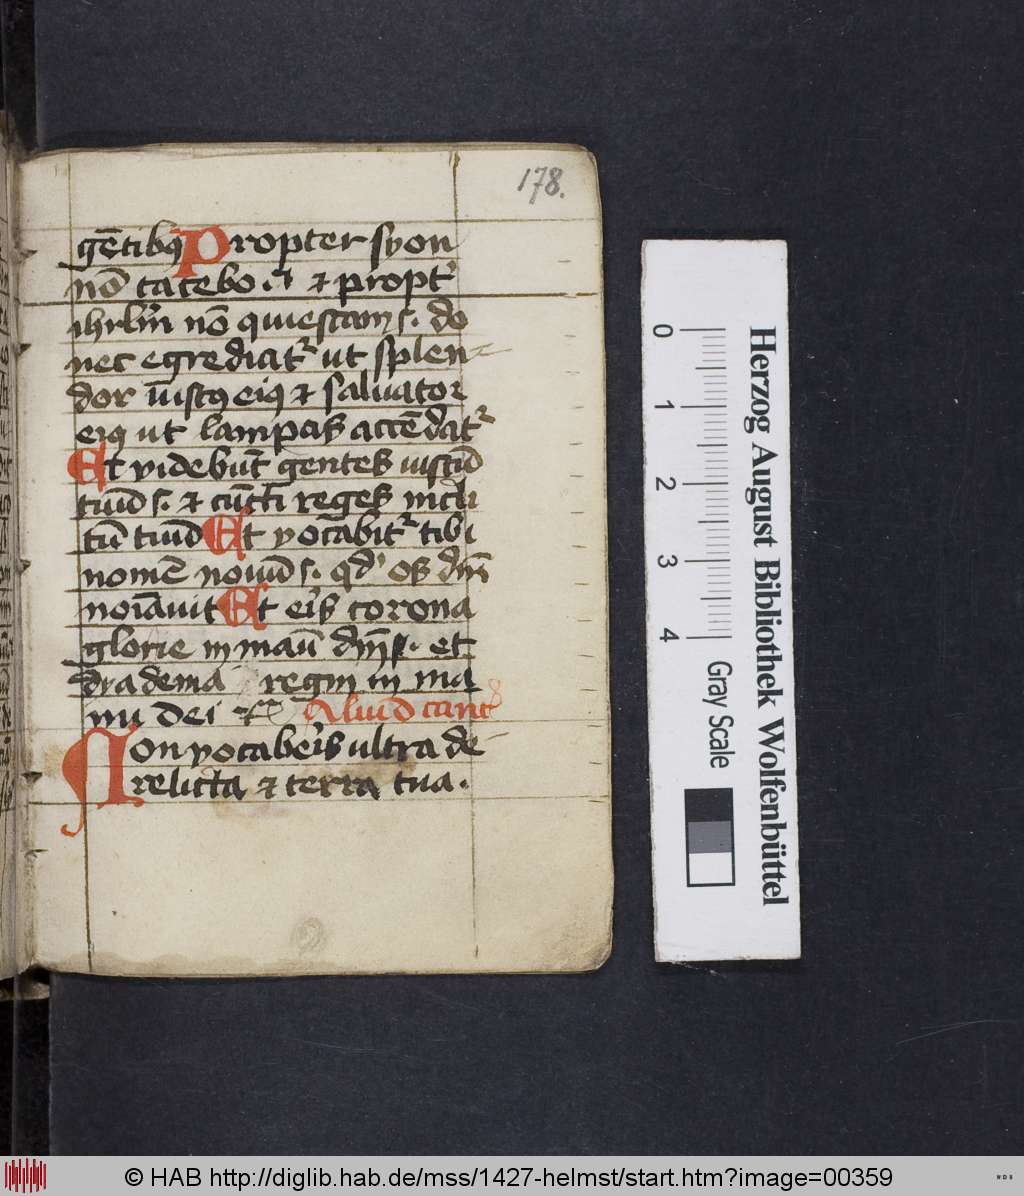 178.
gētibꝯ Propter syon
nō tacebo ⁊ propt᷑
ihrlm̄ nō quiescam s. do
nec egrediat᷑ ut splen
dor iustꝯ eiꝯ ⁊ saluator
eiꝯ ut lampas accēdat᷑
Et videbūt gentes iustū
tuū s. ⁊ cūcti reges incli
tū tuū Et vocabit᷑ tibi
nomē nouū s. qd' os dn̄i
noīauit Et er̄is corona
glorie in manū dn̄i s. et
dyadema regni in ma
nu dei Aliud cant
Non vocaber̄is ultra de
relicta ⁊ terra tua.
Herzog August Bibliothek Wolfenbüttel
0 1 2 3 4
Gray Scale
© HAB http://diglib.hab.de/mss/1427-helmst/start.htm?image=00359